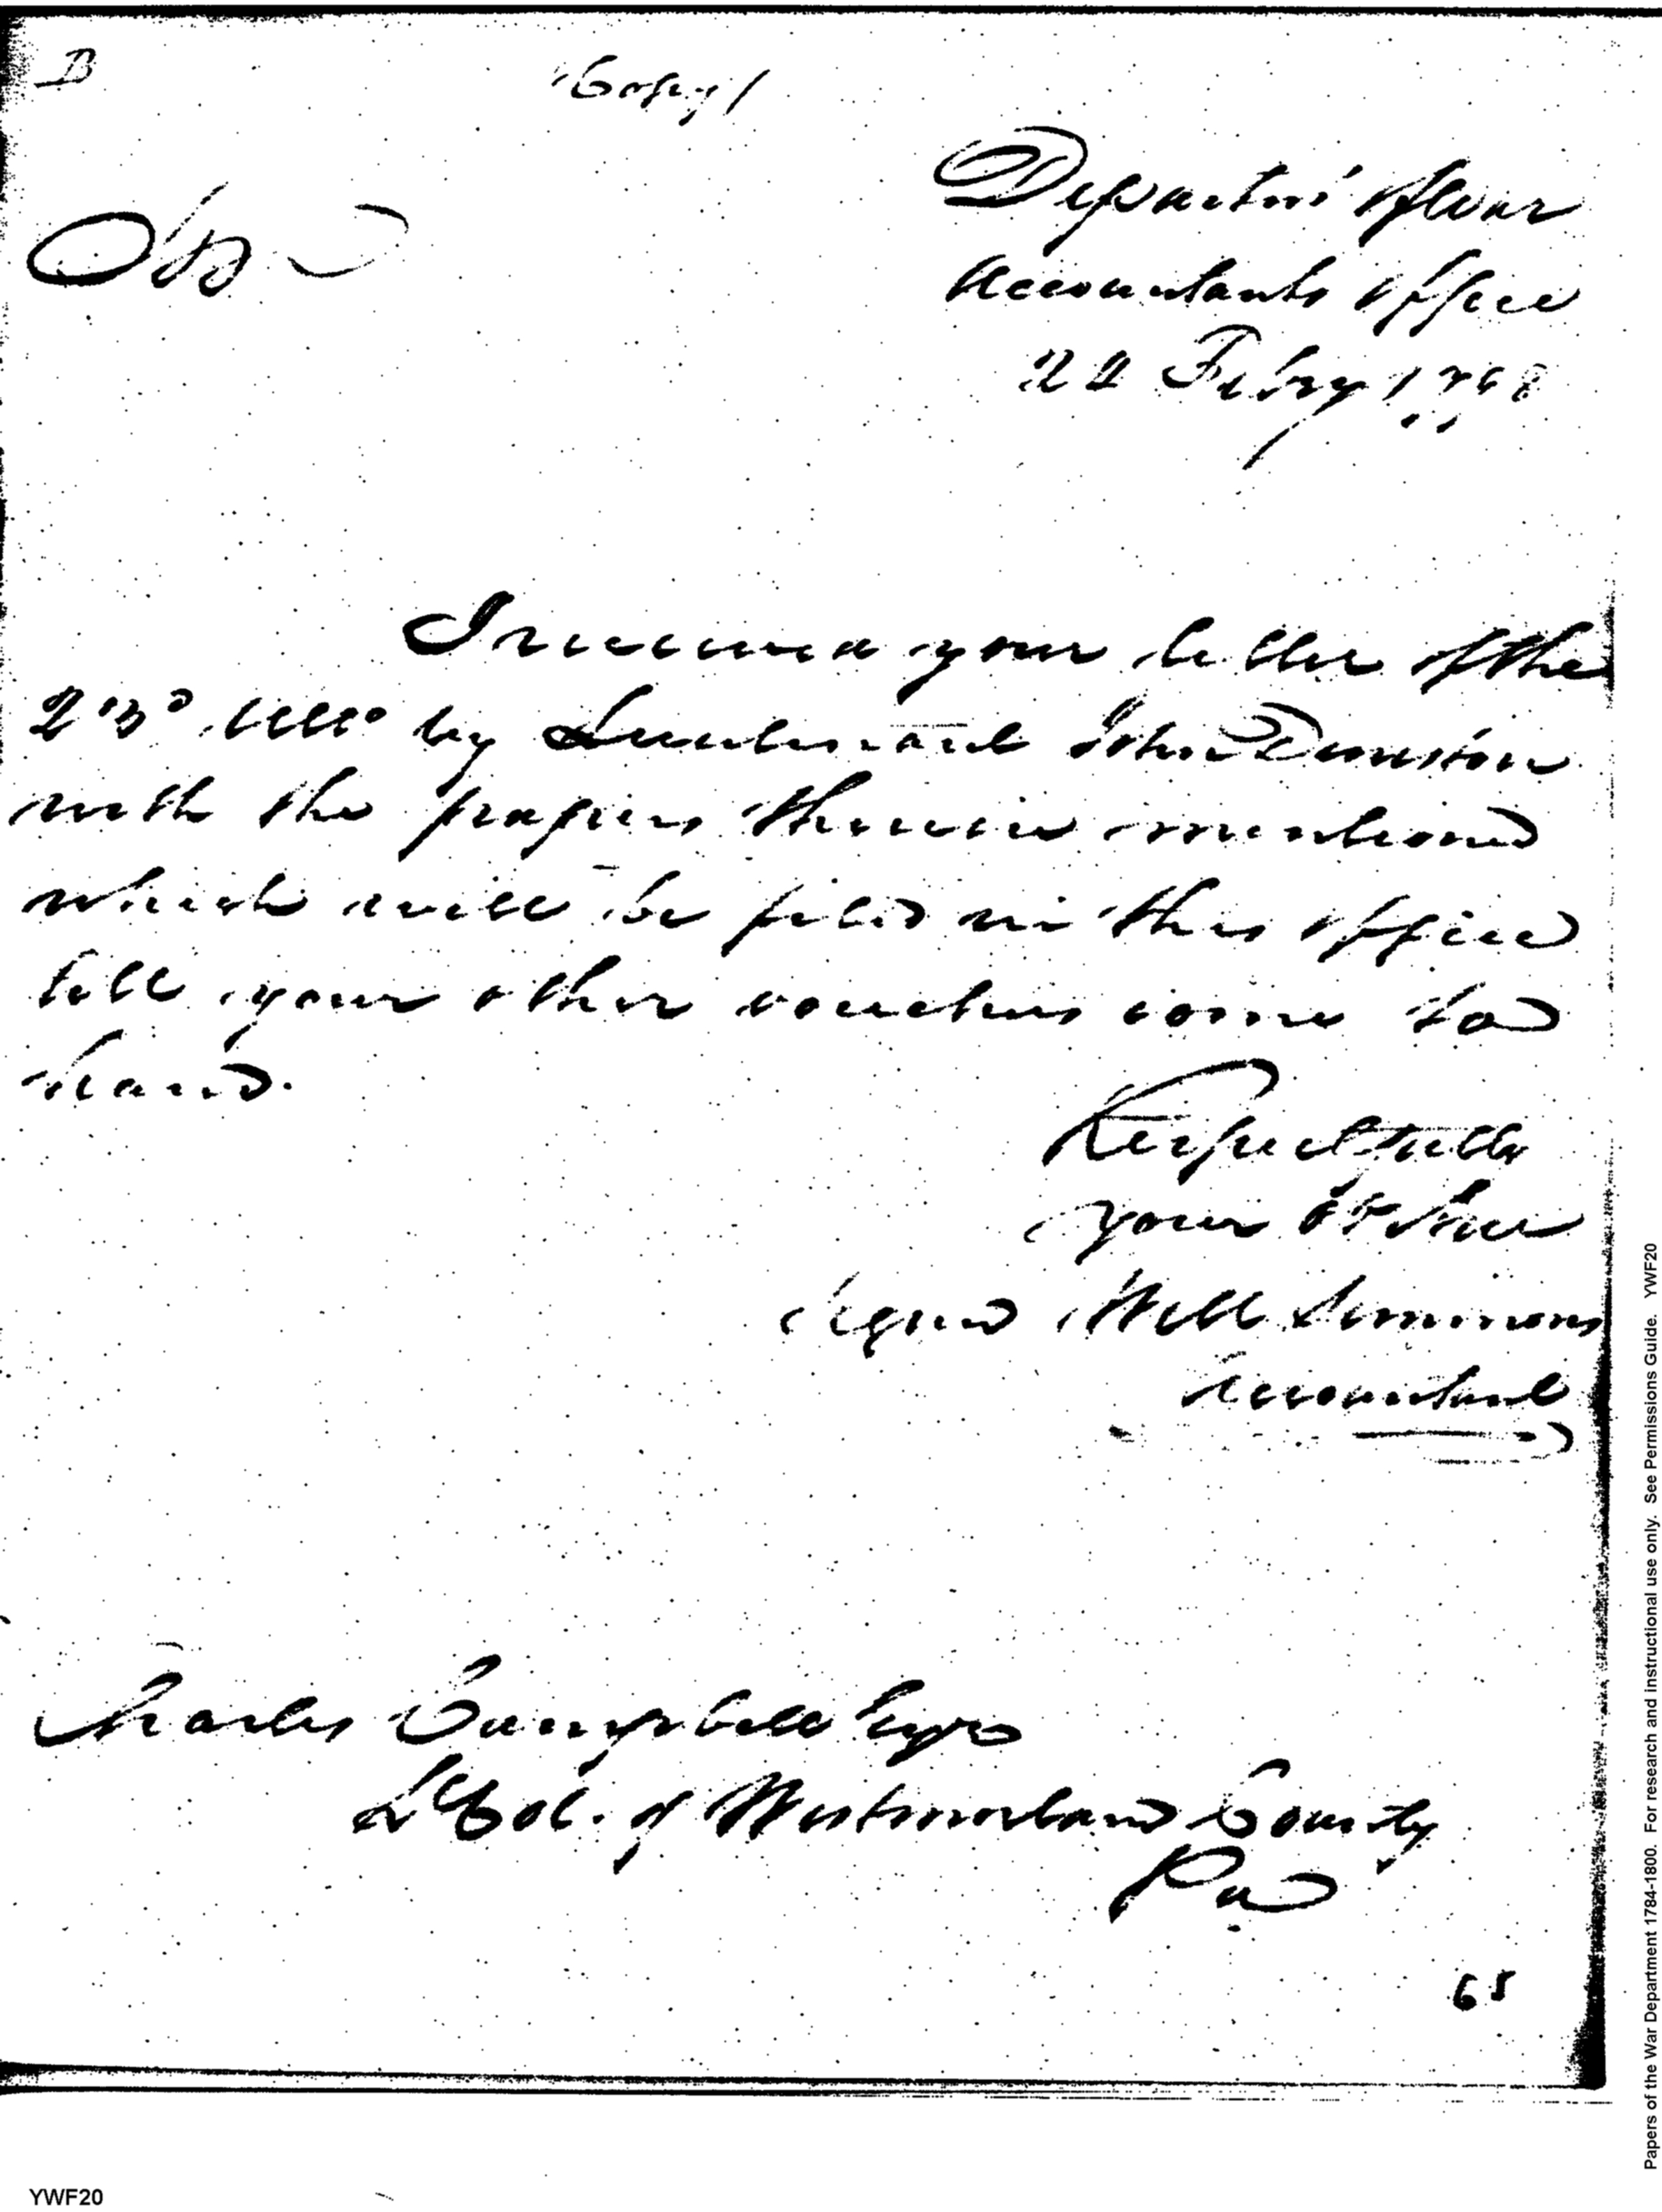 B
(Copy)
Departmt of War
Accountants Office
22 Febry 1798
Sir
I received your letter of the
23d. Ulto by Lieutenant John Denniston
with the papers therein mentioned
which will be filed in this office
till your other vouchers come to
hand.
Respectfully
your Obt Serv
signed Will Simmons
Accountant
Charles Campbell Esqr
Lt Col. of Westmorland County
Pa
65
YWF20
Papers of the War Department 1784-1800. For research and instructional use only. See Permissions Guide. YWF20